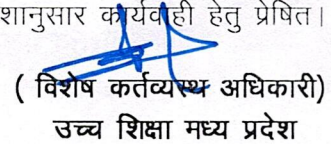 शानुसार कार्यवाही हेतु प्रेषित।
( विशेष कर्तव्यस्थ अधिकारी)
उच्च शिक्षा मध्य प्रदेश